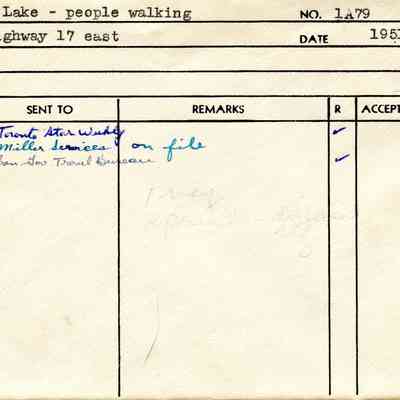 Lake - people walking NO. 1A79
ghway 17 east DATE 1951
SENT TO REMARKS R ACCEPT
Toronto Star Weekly ✓
Miller Services on file
Can Gov Travel Bureau ✓